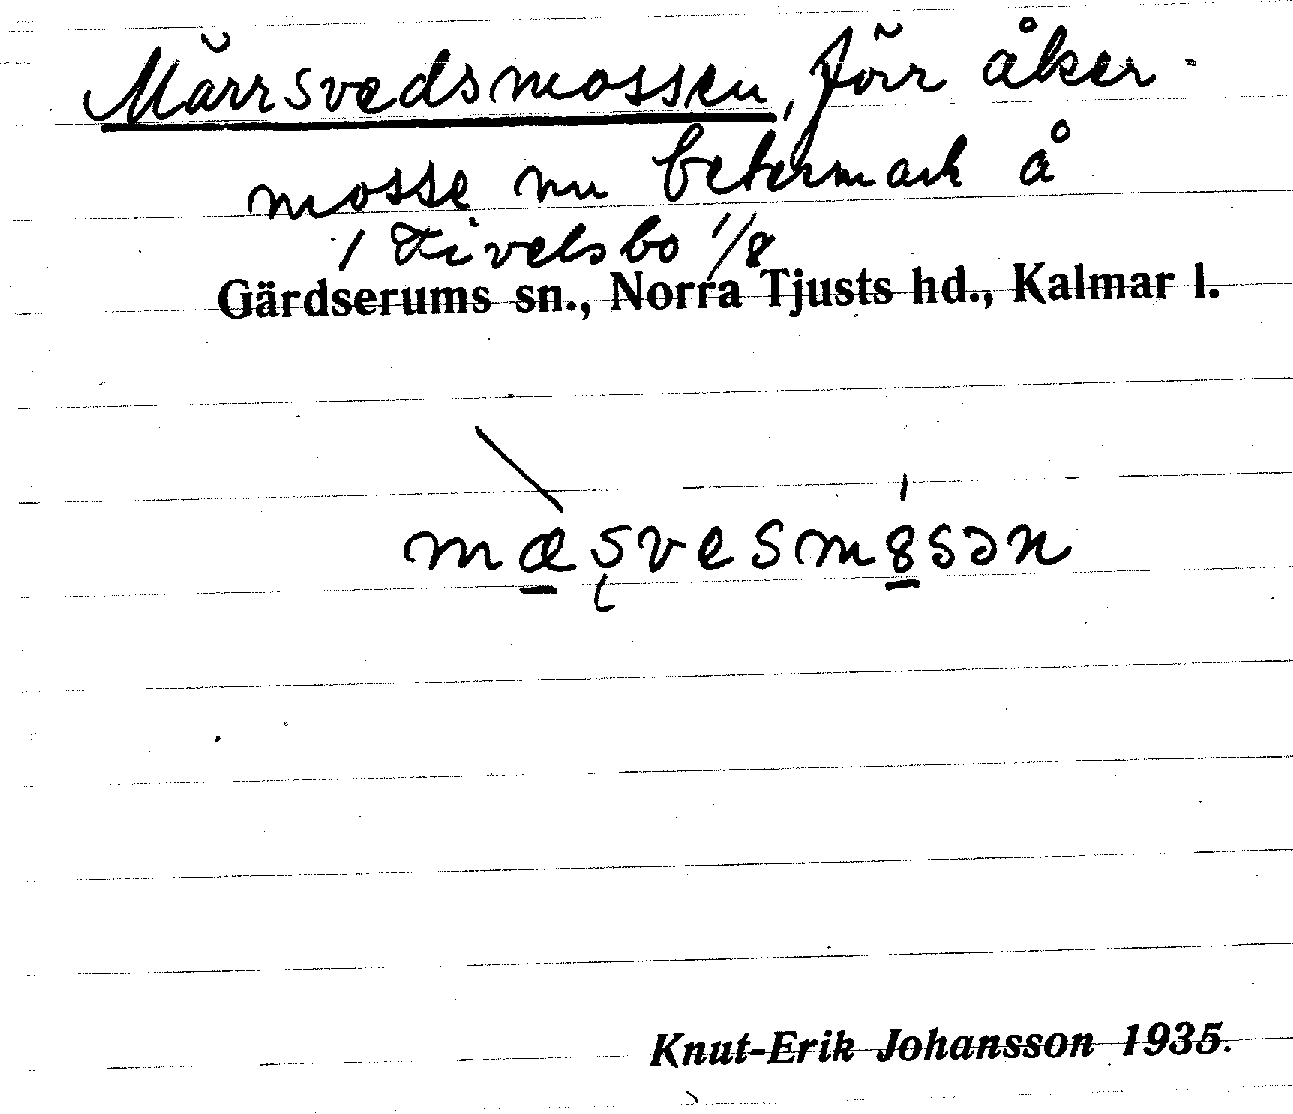 Märrsvedsmossen, förr åker-
mosse nu betesmark å
/ Kivelsbo 1/8
Gärdserums sn., Norra Tjusts hd., Kalmar l.
mæșvesm8sən
Knut-Erik Johansson 1935.